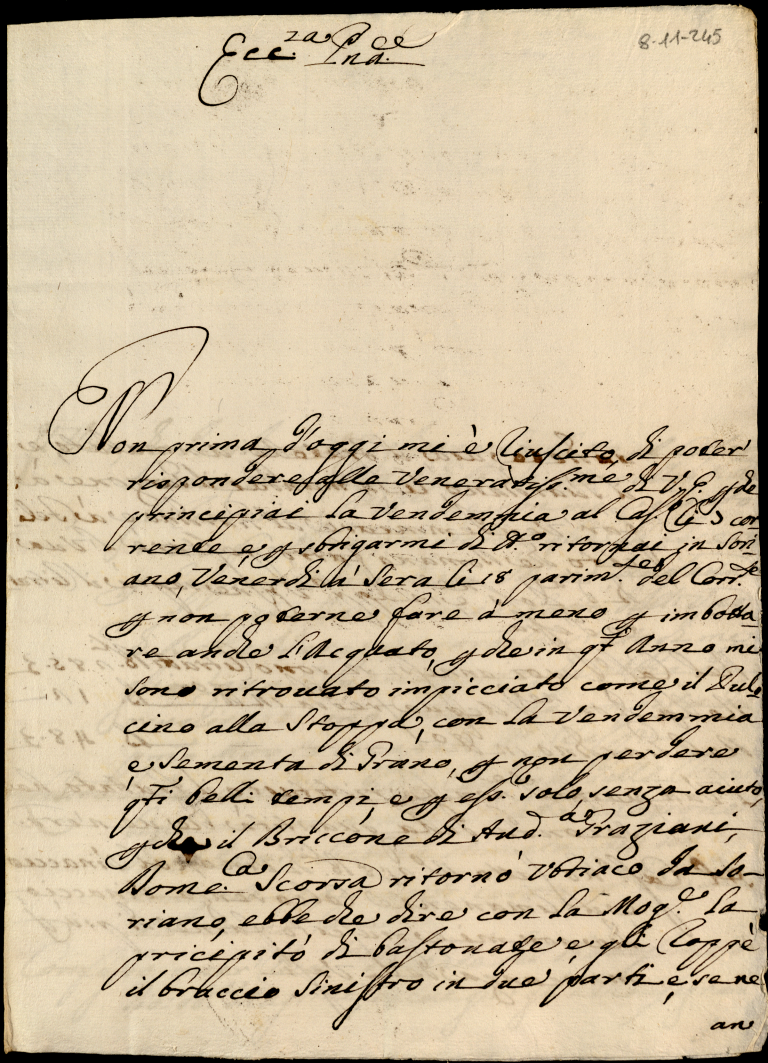 8-11-245
Ecc.za Pnd.ce
Non prima d'oggi mi è riuscito, di poter
rispondere alle Veneratiss.me di V.E. p che
principiai la Vendemmia al Cas. li 3 cor=
rente e p sbrigarmi di d.o ritornai in Sori=
ano, Venerdi à Sera li 18 parim.te del Corr.te
p non poterne fare à meno p imbotta=
re anche l'Acquato, p che in q.to Anno mi
sono ritrovato impicciato come il Pul=
cino alla Stoppa, con la Vendemmia
e Sementa di Grano, p non perdere
q.ti belli tempi, e p ess.e solo, senza aiuto,
p che il Briccone di And.a Graziani,
Dome.ca Scorsa ritornò Vbriaco da So=
riano, ebbe che dire con la Mog.e la
pricipitò di bastonate, e gli roppè
il braccio Sinistro in due parti, e se ne
an